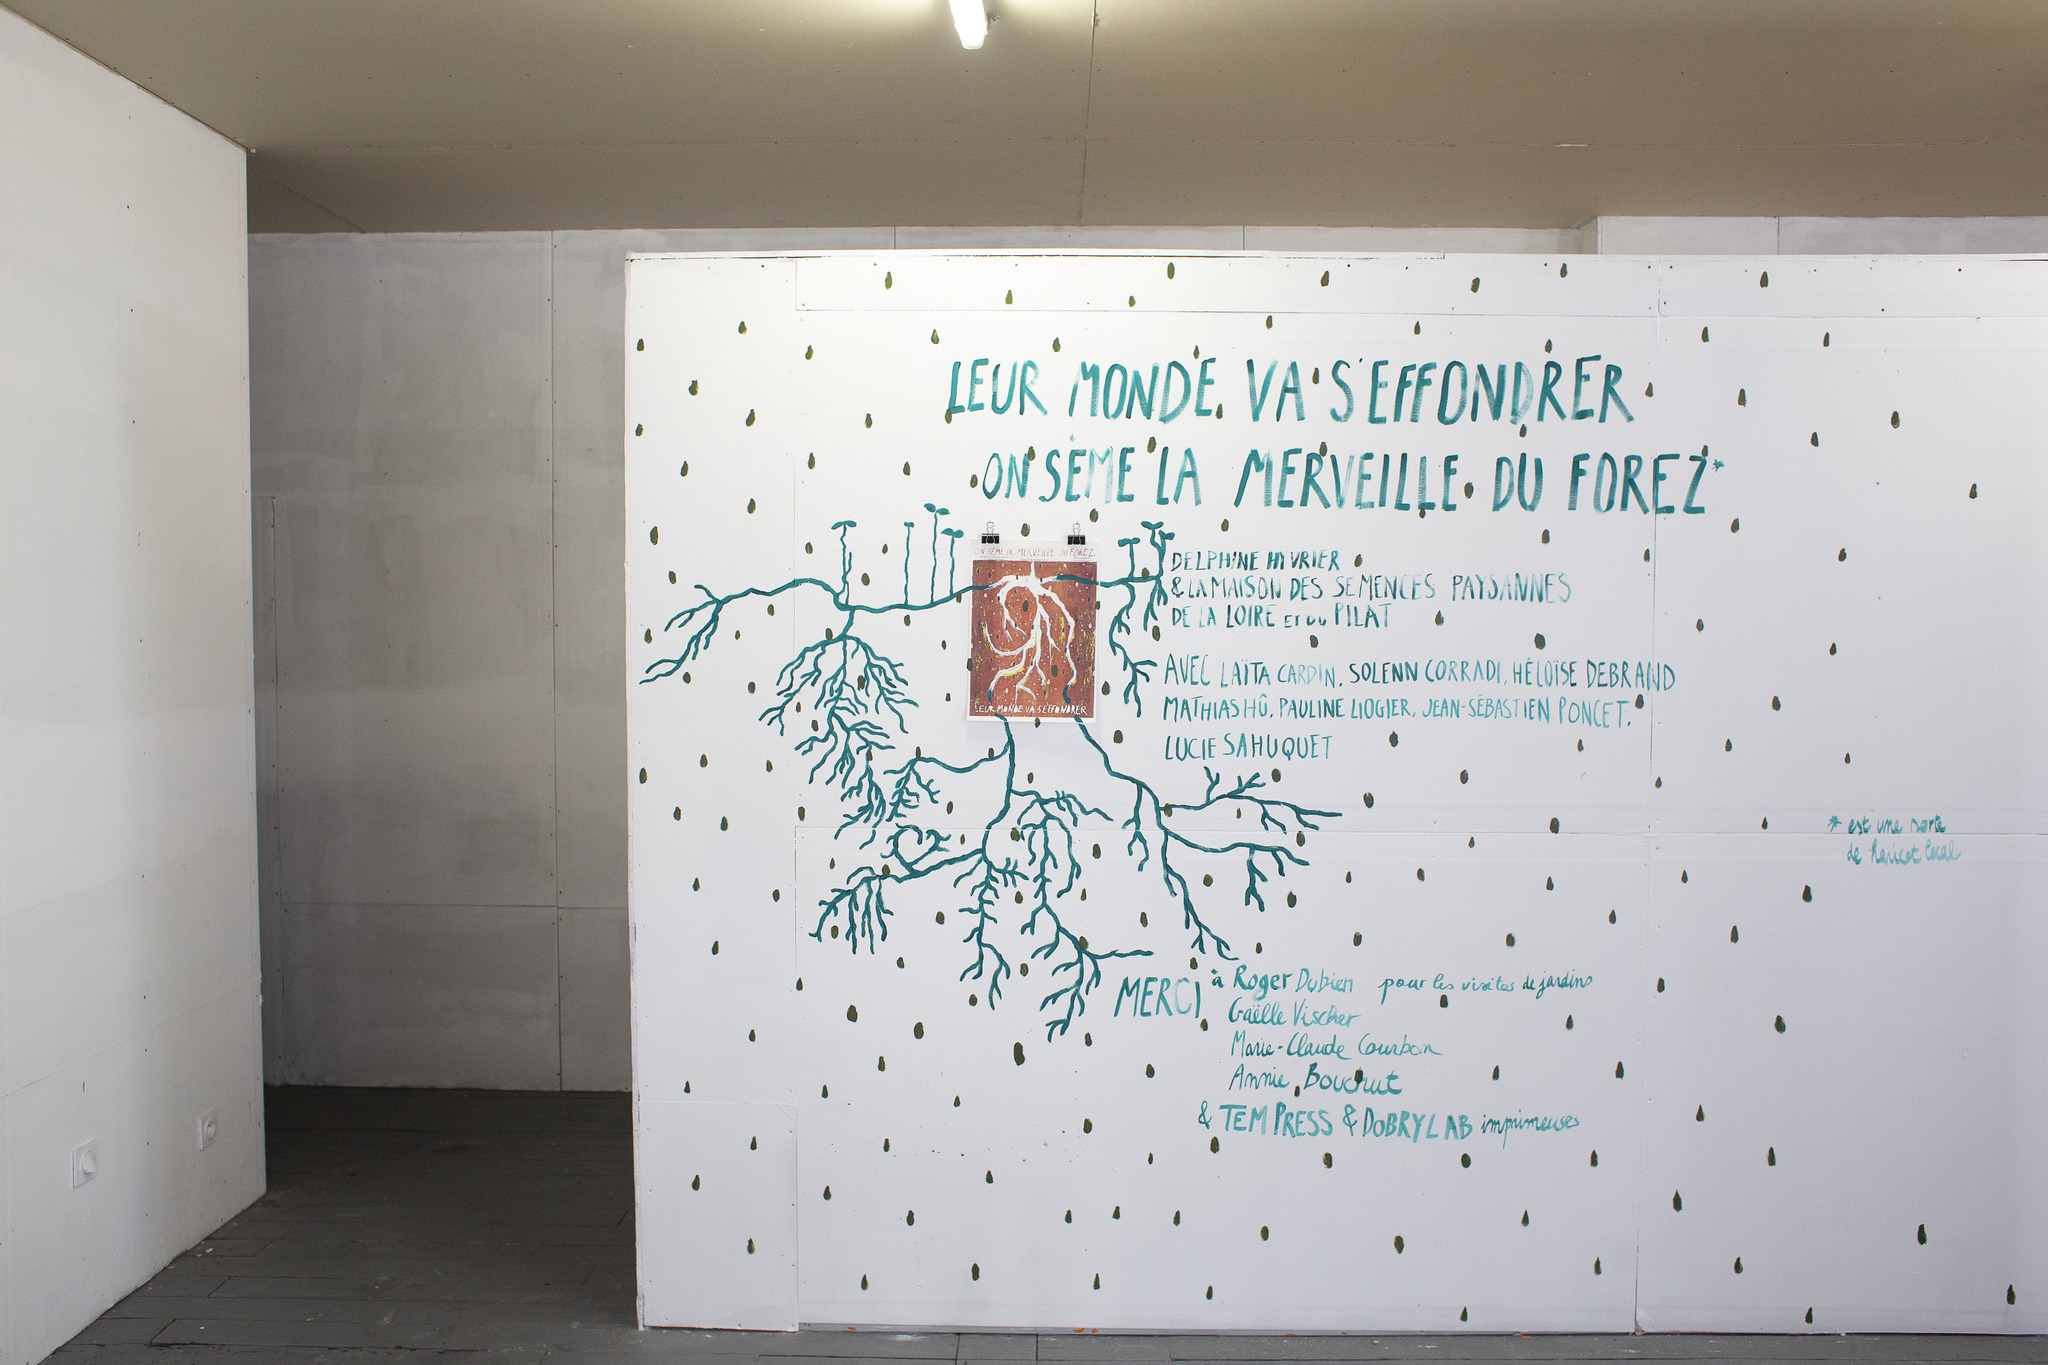 LEUR MONDE VA S'EFFONDRER
ON SÈME LA MERVEILLE DU FOREZ*
ON SÈME LA MERVEILLE DU FOREZ
LEUR MONDE VA S'EFFONDRER
DELPHINE HYVRIER
& LA MAISON DES SEMENCES PAYSANNES
DE LA LOIRE ET DU PILAT
AVEC LAÏTA CARDIN, SOLENN CORRADI, HÉLOÏSE DEBRAND
MATHIAS HÛ, PAULINE LIOGIER, JEAN-SÉBASTIEN PONCET,
LUCIE SAHUQUET
* est une sorte
de haricot local
MERCI à Roger Dubien pour les visites de jardins
Gaëlle Vischer
Marie-Claude Courbon
Annie Bouchut
& TEM PRESS & DOBRYLAB imprimeuses